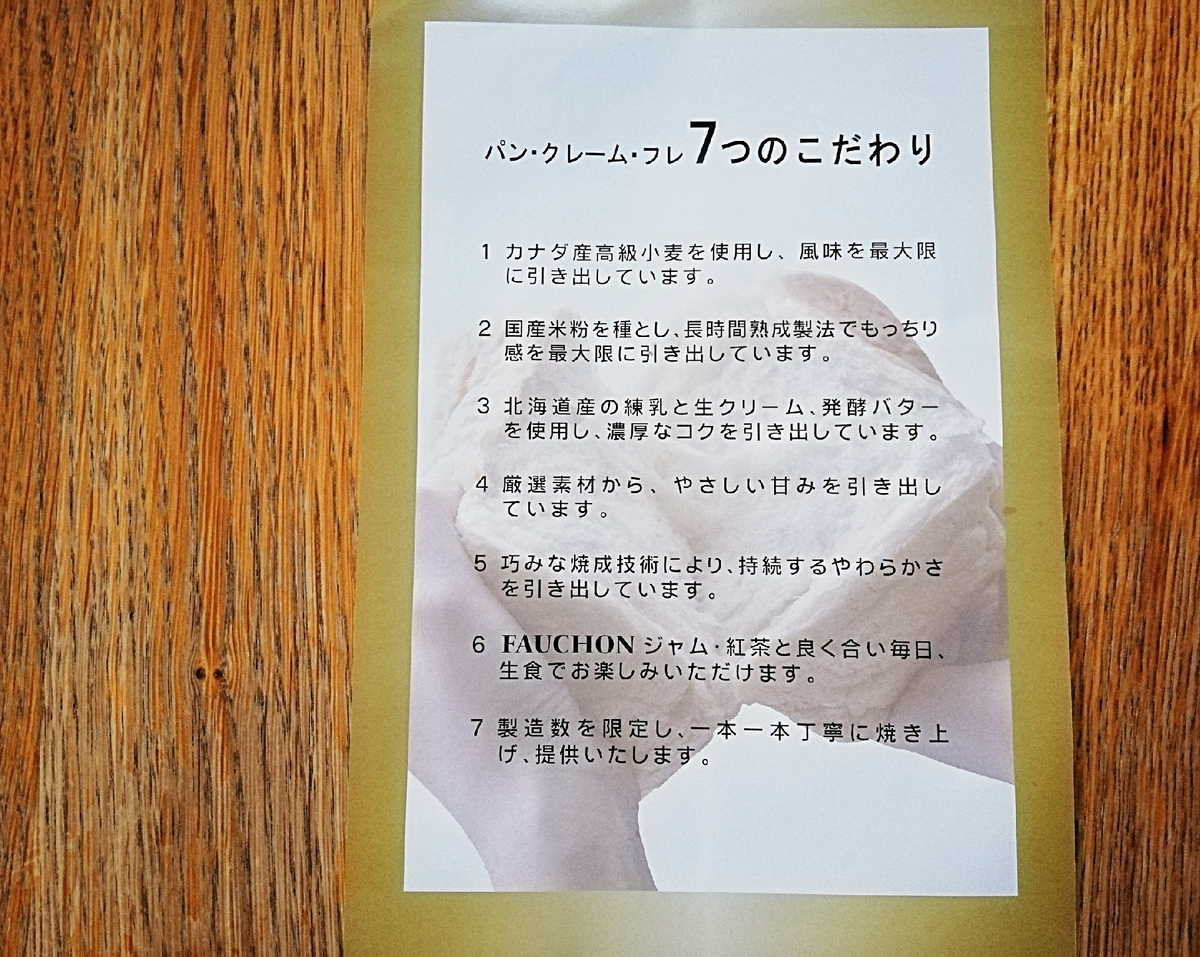 パン・クレーム・フレ7つのこだわり
1 カナダ産高級小麦を使用し、風味を最大限
に引き出しています。
2 国産米粉を種とし、長時間熟成製法でもっちり
感を最大限に引き出しています。
3 北海道産の練乳と生クリーム、発酵バター
を使用し、濃厚なコクを引き出しています。
4 厳選素材から、やさしい甘みを引き出し
ています。
5 巧みな焼成技術により、持続するやわらかさ
を引き出しています。
6 FAUCHON ジャム・紅茶と良く合い毎日、
生食でお楽しみいただけます。
7 製造数を限定し、一本一本丁寧に焼き上
げ、提供いたします。